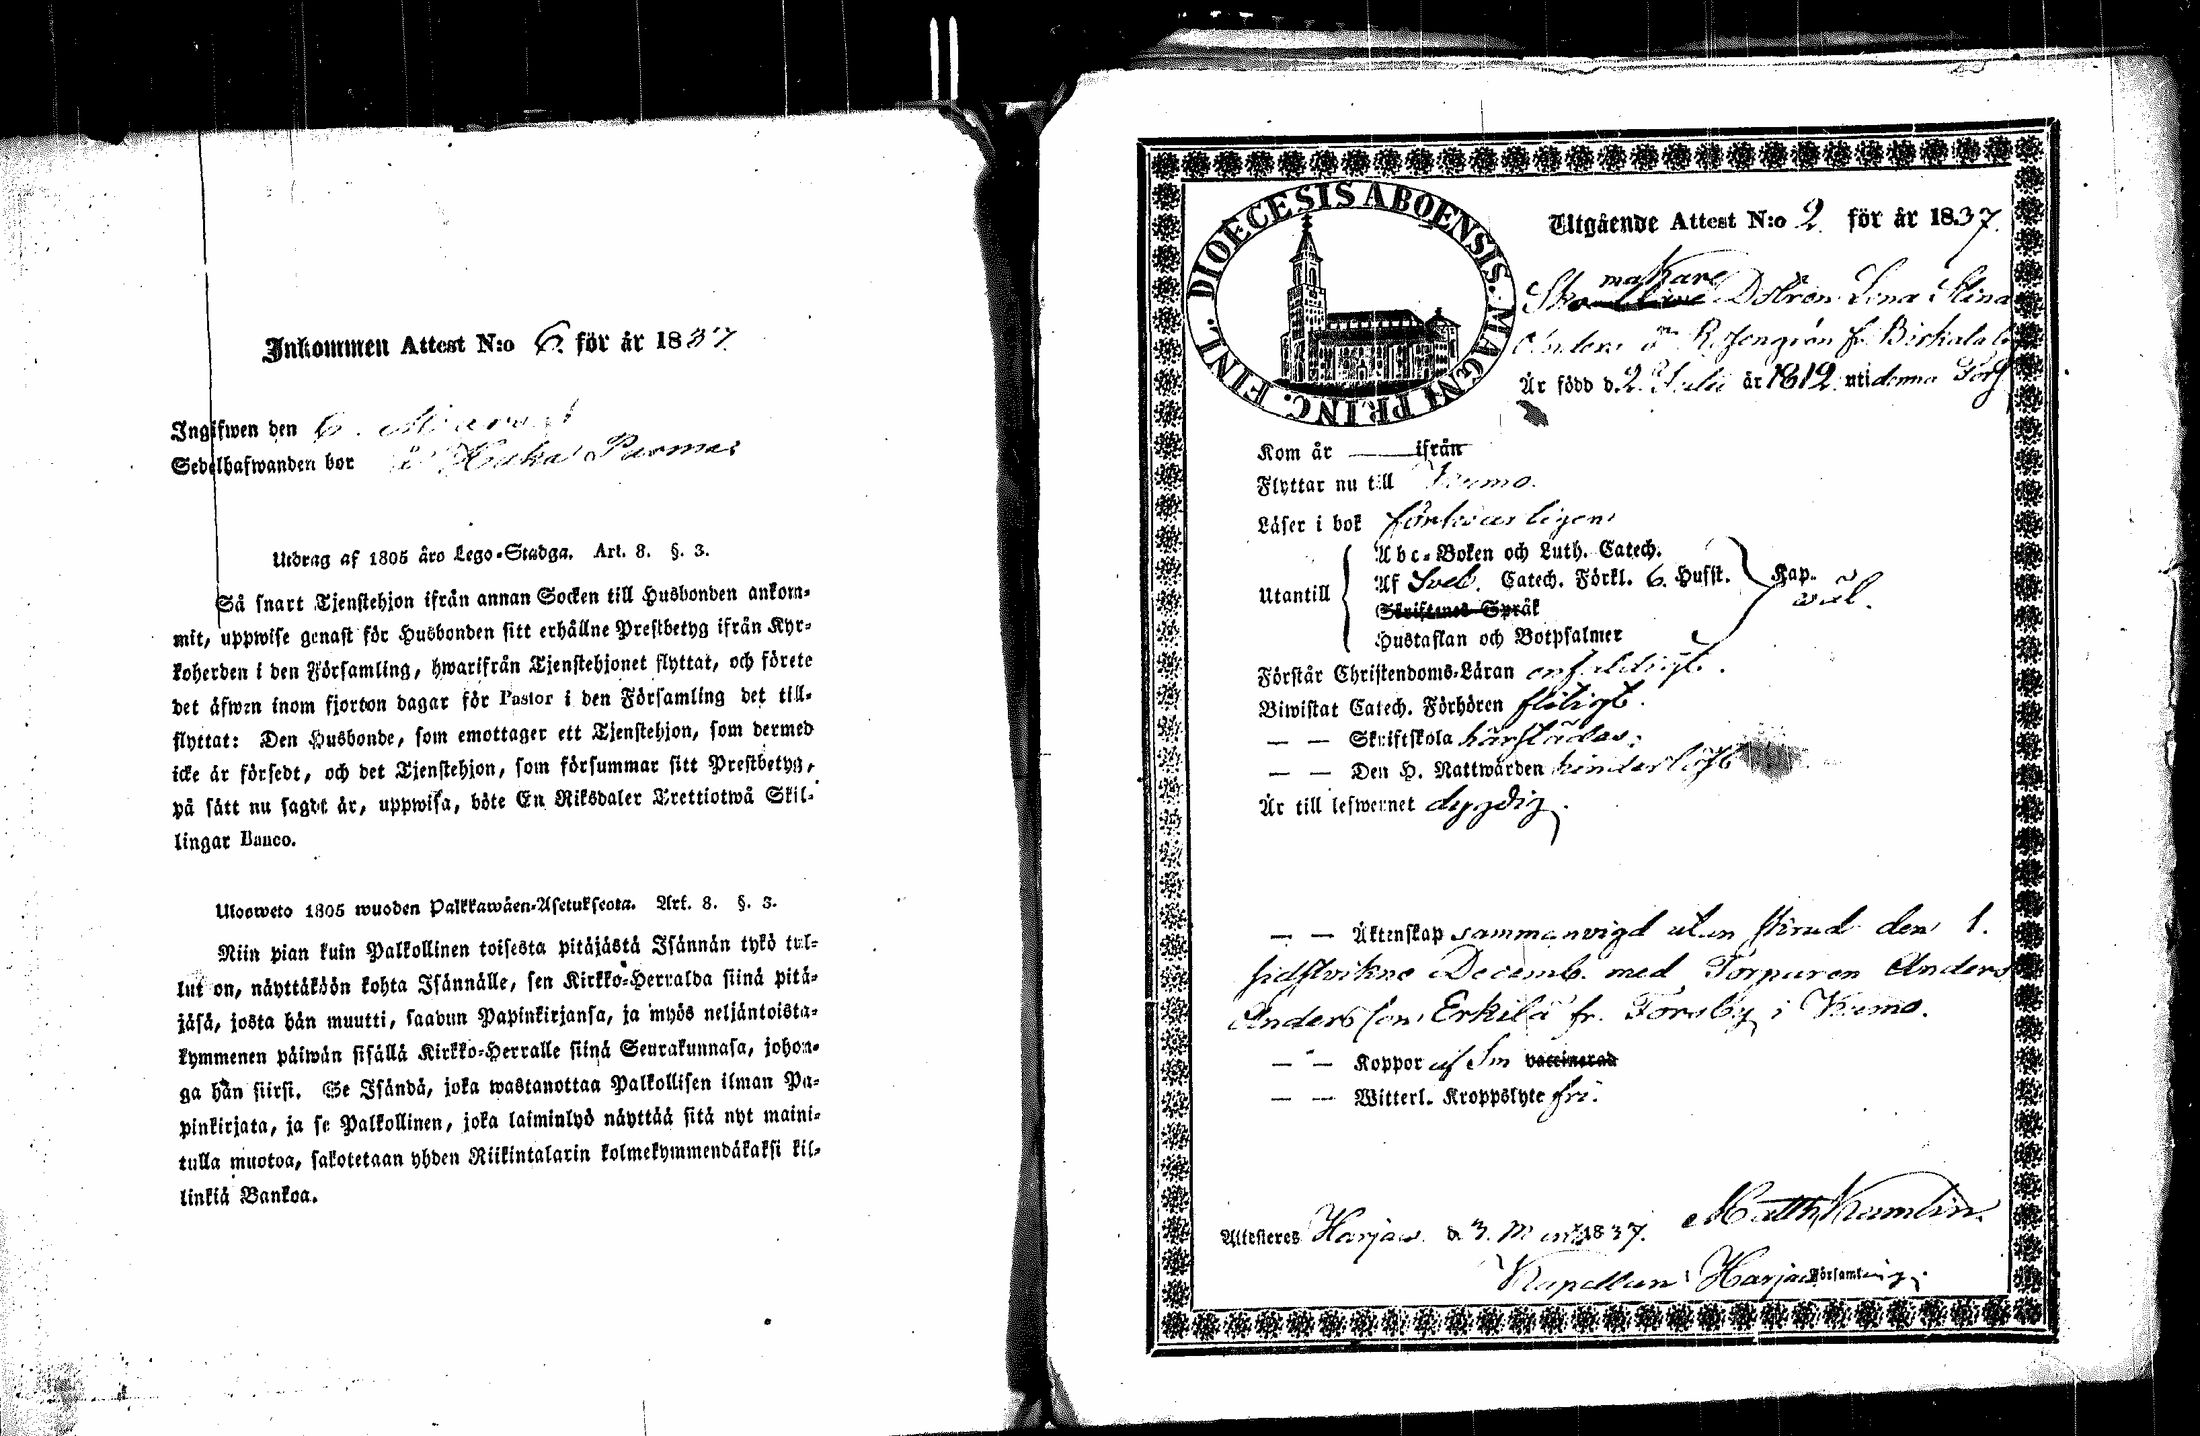 Inkommen Attest N:o 6. för år 1837.
Ingifwen den 6. Mars
Sedelhafwanden bor
Utdrag af 1805 års Lego-Stadga. Art. 8. §. 3.
Så snart Tjenstehjon ifrån annan Socken till Husbonden ankom-
mit, uppwise genast för Husbonden sitt erhållne Prestbetyg ifrån Kyr-
koherden i den Församling, hwarifrån Tjenstehjonet flyttat, och förete
det äfwen inom fjorton dagar för Pastor i den Församling det till-
flyttat: Den Husbonde, som emottager ett Tjenstehjon, som dermed
icke är försedt, och det Tjenstehjon, som försummar sitt Prestbetyg,
på sätt nu sagdt är, uppwisa, böte En Riksdaler Trettiotwå Skil-
lingar Banco.
Ulosweto 1805 wuoden Palkkawäen-Asetuksesta. Art. 8. §. 3.
Niin pian kuin Palkollinen toisesta pitäjästä Isännän tykö tul-
lut on, näyttäköön kohta Isännälle, sen Kirkko-Herralda siinä pitä-
jäsä, josta hän muutti, saadun Papinkirjansa, ja myös neljäntoista-
kymmenen päiwän sisällä Kirkko-Herralle siinä Seurakunnasa, johon-
ga hän siirsi. Se Isändä, joka wastanottaa Palkollisen ilman Pa-
pinkirjata, ja se Palkollinen, joka laiminlyö näyttää sitä nyt maini-
tulla muotoa, sakotetaan yhden Riikintalarin kolmekymmendäkaksi kil-
linkiä Bankoa.
DIOECESIS ABOENSIS. MAGNI PRINC. FINL.
Utgående Attest N:o 2. för år 1837.
makare
Sko Dottren Lena Stina
Anders dr Rosengrén fr. Birkala by
Är född d. 2. Julii år 1812. uti denna Förs
Kom år — ifrån
Flyttar nu till Wemo.
Läser i bok försvarligen
Abc-Boken och Luth. Catech.
Utantill Af Sveb. Catech. Förkl. 6. Husst. Kap. wäl.
Skriftenes Språk
Hustaflan och Botpsalmer
Förstår Christendoms-Läran enfaldigt.
Biwistat Catech. Förhören flitigt.
— — Skriftskola härstädes;
— — Den H. Nattwarden hinderlöst
Är till lefwernet dygdig.
— — Äktenskap sammanvigd utan förbud den 1.
sidstvikne Decemb. med Torparen Anders
Andersson Erkilä fr. Torsby i Wemo.
— — Koppor af Sm vaccinerad
— — Witterl. Kroppslyte fri.
Attesteres Harjawa d. 3. Mars 1837. Matth.
Kapellan i Harjawa Församling.